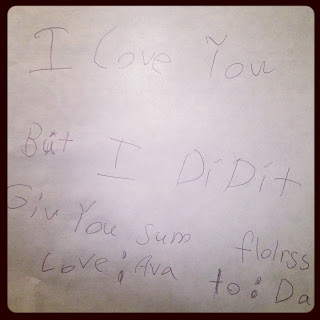 I Love You
But I DiDit
Giv You sum flolrss
Love: Ava to: Da